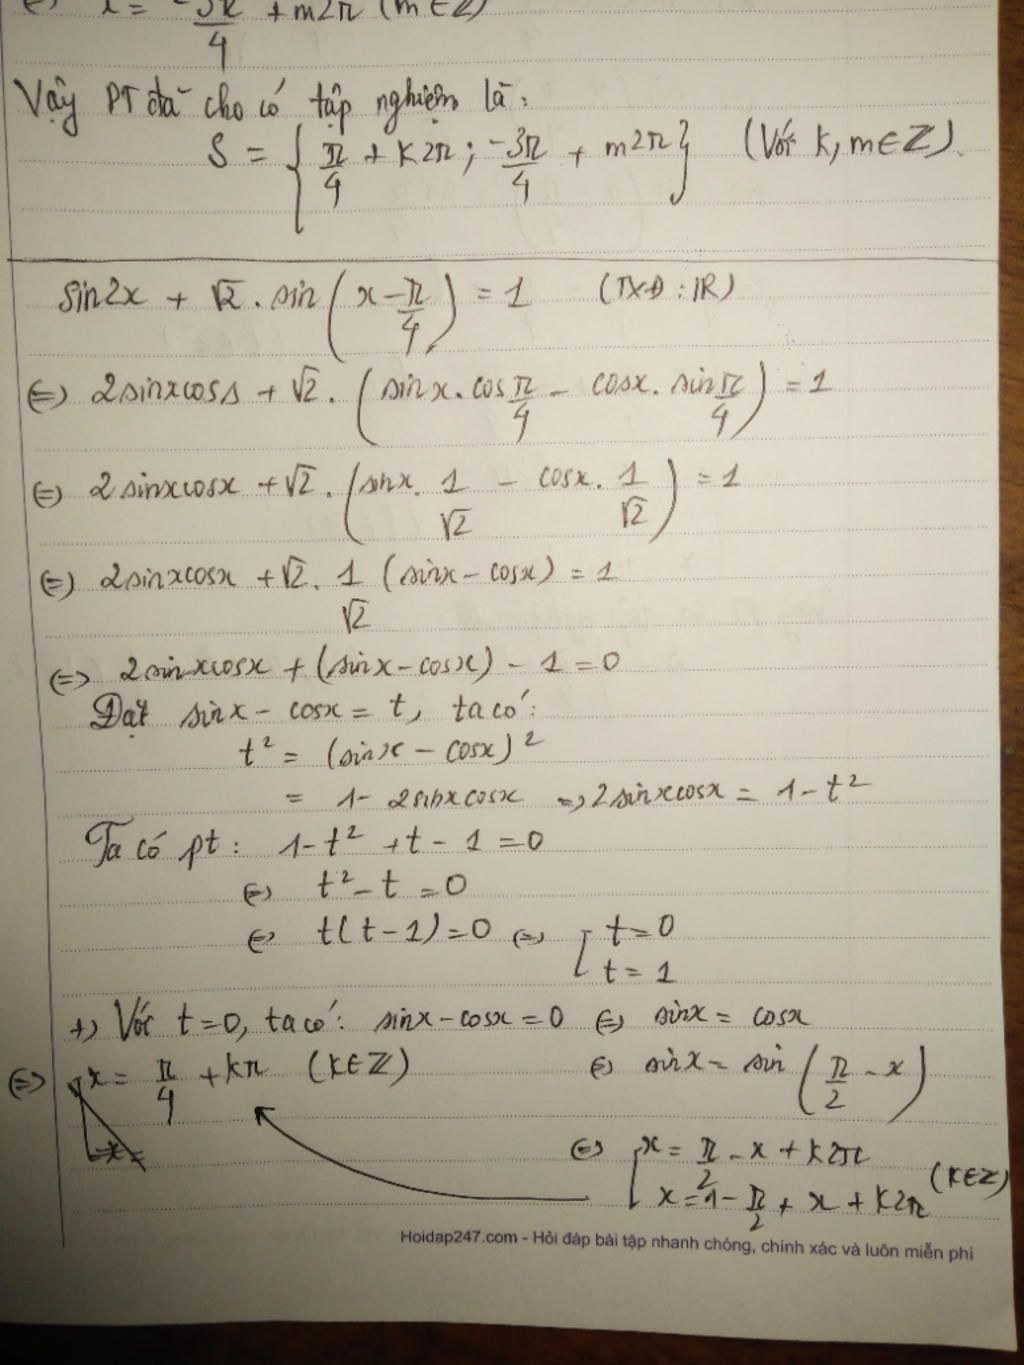 (=) x = -3π/4 + m2π (m ∈ Z)
Vậy PT đã cho có tập nghiệm là:
S = { π/4 + k2π; -3π/4 + m2π } (Với k, m ∈ Z).
sin2x + √2 . sin(x - π/4) = 1 (TXĐ: IR)
(=) 2sinxcosx + √2 . (sinx . cos π/4 - cosx . sin π/4) = 1
(=) 2sinxcosx + √2 . (sinx . 1/√2 - cosx . 1/√2) = 1
(=) 2sinxcosx + √2 . 1/√2 (sinx - cosx) = 1
(=) 2sinxcosx + (sinx - cosx) - 1 = 0
Đặt sinx - cosx = t, ta có:
t² = (sinx - cosx)²
= 1 - 2sinxcosx => 2sinxcosx = 1 - t²
Ta có pt: 1 - t² + t - 1 = 0
(=) t² - t = 0
(=) t(t - 1) = 0 (=) [ t = 0
t = 1
+) Với t = 0, ta có: sinx - cosx = 0 (=) sinx = cosx
(=) x = π/4 + kπ (k ∈ Z) (=) sinx = sin(π/2 - x)
(=) [ x = π/2 - x + k2π
x = π - π/2 + x + k2π (k ∈ Z)
Hoidap247.com - Hỏi đáp bài tập nhanh chóng, chính xác và luôn miễn phí